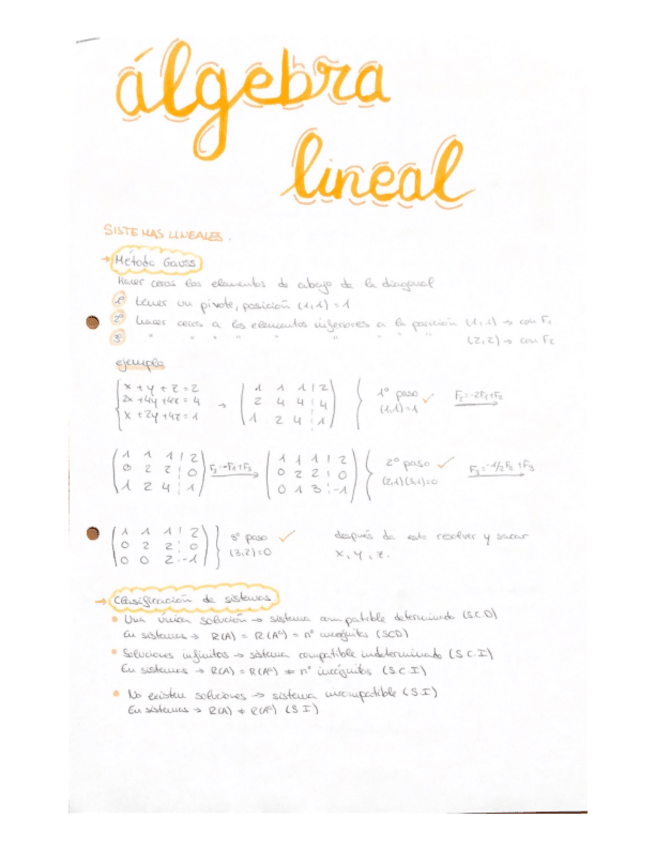 álgebra
lineal
SISTEMAS LINEALES.
→ Método Gauss
Hacer ceros los elementos de abajo de la diagonal
1º tener un pivote, posición (1,1)=1
2º hacer ceros a los elementos inferiores a la posición (1,1) → con F₁
3º " " " " " " " " " (2,2) → con F₂
ejemplo
x + y + z = 2
2x + 4y + 4z = 4
x + 2y + 4z = 1
→
1 1 1 | 2
2 4 4 | 4
1 2 4 | 1
1º paso ✓
(1,1)=1
F₂=-2F₁+F₂
1 1 1 | 2
0 2 2 | 0
1 2 4 | 1
F₃=-F₁+F₃
1 1 1 | 2
0 2 2 | 0
0 1 3 | -1
2º paso ✓
(2,1)(3,1)=0
F₃=-1/2F₂+F₃
1 1 1 | 2
0 2 2 | 0
0 0 2 | -1
3º paso ✓
(3,2)=0
después de esto resolver y sacar
x, y, z.
→ Clasificación de sistemas
• Una única solución → sistema compatible determinado (S.C.D)
En sistemas → R(A) = R(Aᵃ) = nº incógnitas (SCD)
• Soluciones infinitas → sistema compatible indeterminado (S.C.I)
En sistemas → R(A) = R(Aᵃ) ≠ nº incógnitas (S.C.I)
• No existen soluciones → sistema incompatible (S.I)
En sistemas → R(A) ≠ R(Aᵃ) (S.I)